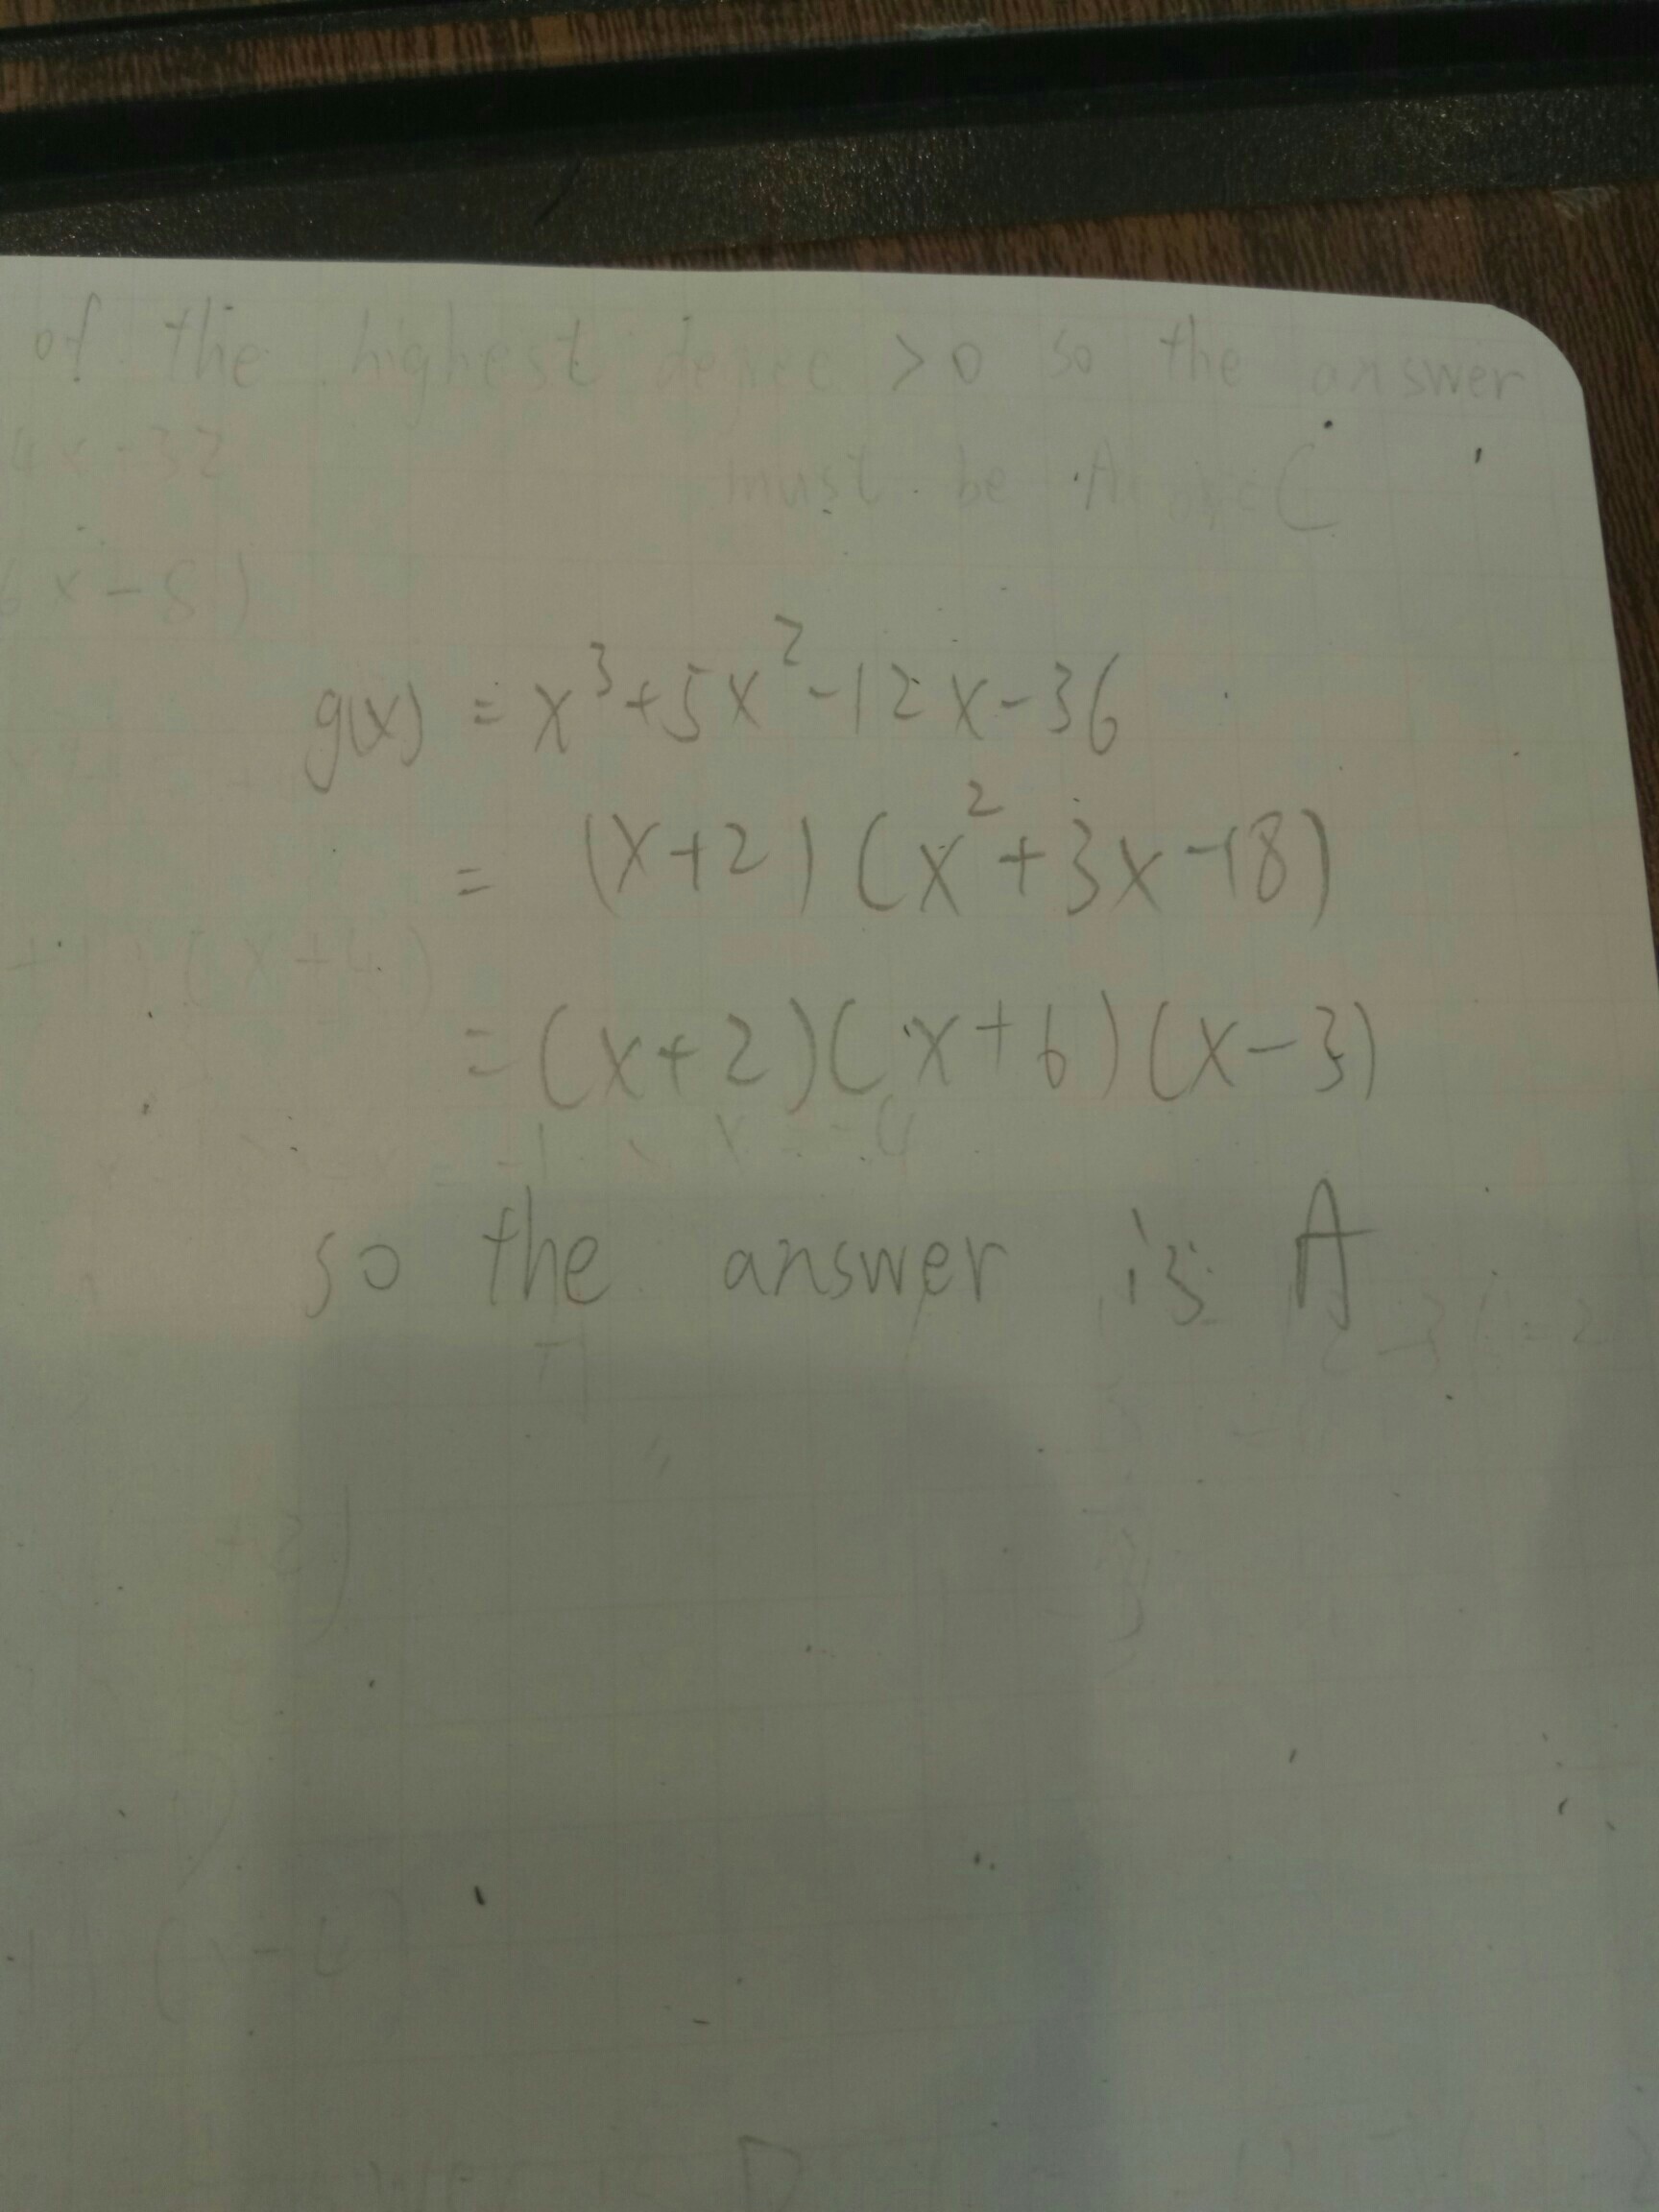 of the highest degree >0 so the answer
4x-32
must be A or C
6x-8)
g(x) = x³+5x²-12x-36
= (x+2)(x²+3x-18)
+1)(x+4)
= (x+2)(x+6)(x-3)
so the answer is A
+2)